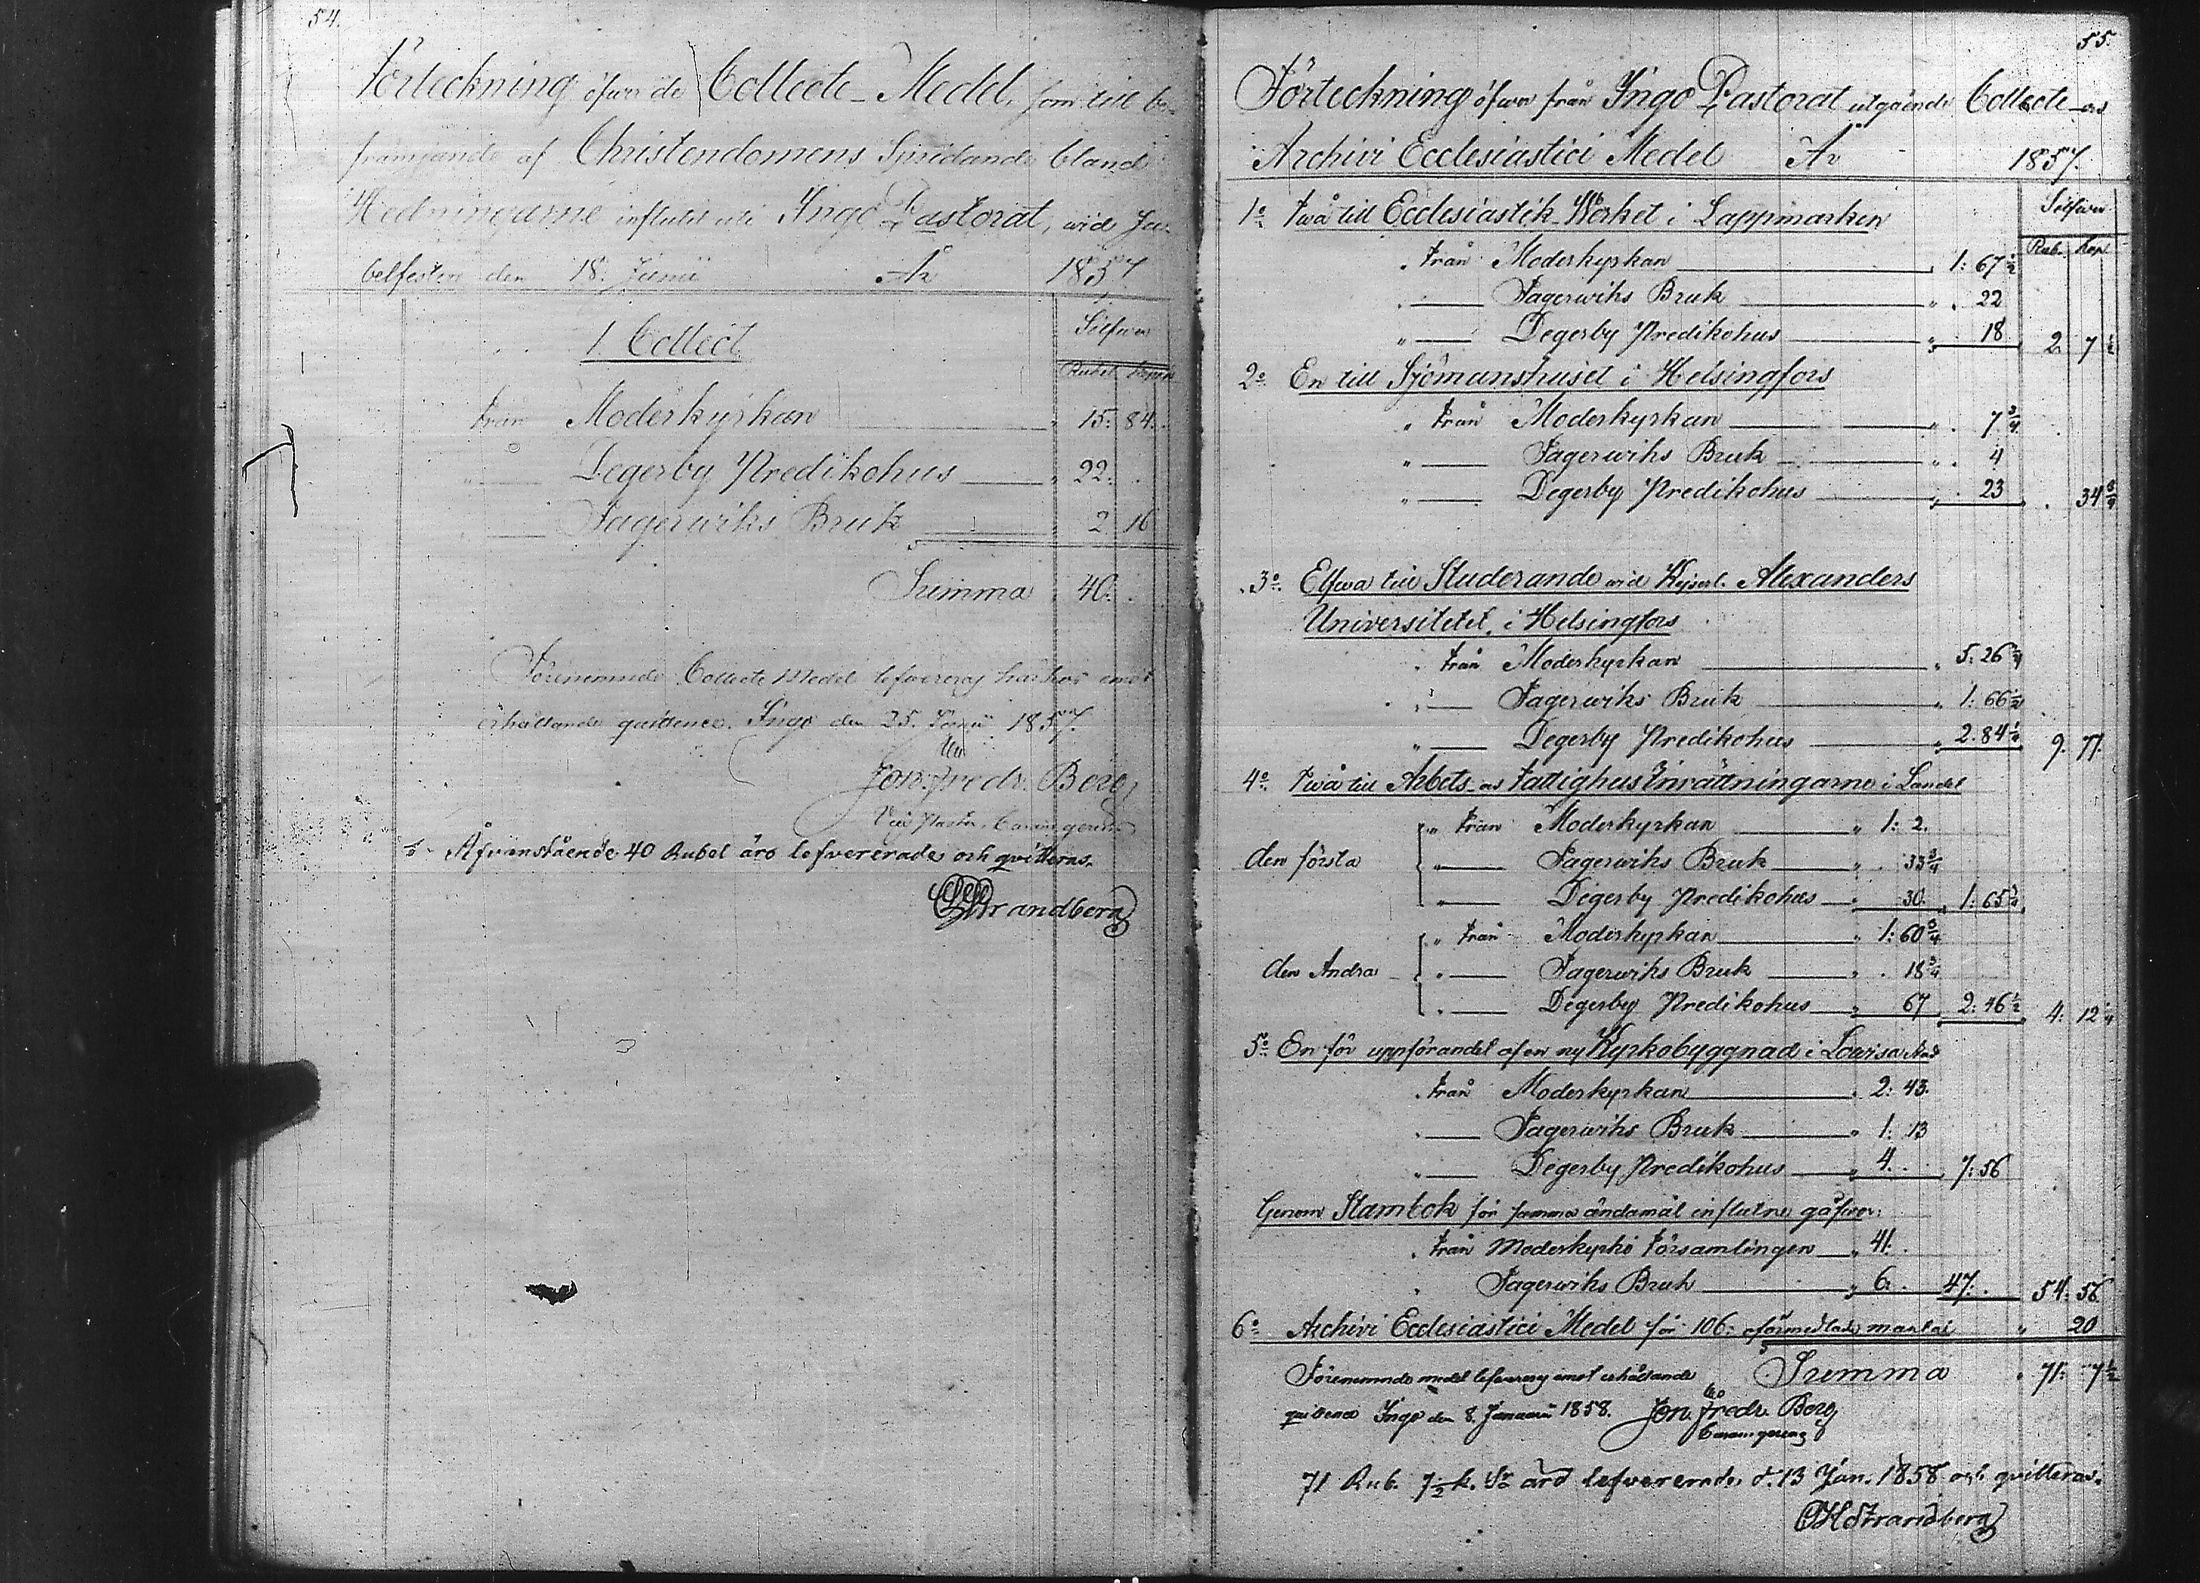 54.
Förteckning öfwer de Collecte-Medel, som till be-
främjande af Christendomens Spridande bland
Hedningarne influtit uti Ingo Pastorat, wid Ju-
belfesten den 18. Junii År 1857
1 Collect
Silfwer
Rubel Kopek
från Moderkyrkan " 15: 84.
" Degerby Predikohus " 22: .
" Fagerwiks Bruk " 2 16
Summa . 40: .
Förenämnde Collecte Medel lefvereras härhos emot
erhållande quittence. Ingo den 25. Junii 1857.
Jon: Fredr. Berg
Vice Pastor, Cavangerens
Åfvanstående 40 Rubel äro lefvererade och qvitteras.
Strandberg
55.
Förteckning öfwer från Ingo Pastorat utgående Collecte- och
Archivi Ecclesiastici Medel År 1857.
Silfwer
Rub. Kop
1o Två till Ecclesiastik-Werket i Lappmarken
" från Moderkyrkan " 1: 67 1/2
" Fagerwiks Bruk " . 22
" Degerby Predikohus " 18 2. 7 1/2
2o En till Sjömanshuset i Helsingfors
" från Moderkyrkan " . 7 3/4
" Fagerwiks Bruk " . 4
" Degerby Predikohus " . 23 . 34 3/4
3o Elfwa till Studerande wid Kejserl. Alexanders
Universitetet i Helsingfors
" från Moderkyrkan " 5: 26 1/4
" Fagerwiks Bruk " 1: 66 1/2
" Degerby Predikohus " 2: 84 1/4 9. 77.
4o Två till Arbets- och Fattighus Inrättningarne i Landet
" från Moderkyrkan " 1: 2.
den första " Fagerwiks Bruk " . 33 3/4
" Degerby Predikohus " 30. " 1: 65 3/4
" från Moderkyrkan " 1: 60 3/4
den Andra " Fagerwiks Bruk " . 18 3/4
" Degerby Predikohus " 67 2: 46 1/2 4: 12 1/4
5o En för uppförandet af en ny Kyrkobyggnad i Lowisa Stad
från Moderkyrkan . 2: 43.
" Fagerwiks Bruk " 1: 13
" Degerby Predikohus " 4. . 7: 56
Genom Stambok för samma ändamål influtne gåfwor:
från Moderkyrko Församlingen " 41: .
" Fagerwiks Bruk " 6: . 47: . 54: 56.
6o Archivi Ecclesiastici Medel för 106: oförmedlade mantal " 20
Förenämnde medel lefvereras emot erhållande Summa . 71: 7 1/2
quittence Ingo den 8. Januarii 1858. Jon. Fredr. Berg
71 Rub. 7 1/2 k. Sr äro lefvererade d. 13 Jan. 1858 och qvitteras.
CHStrandberg